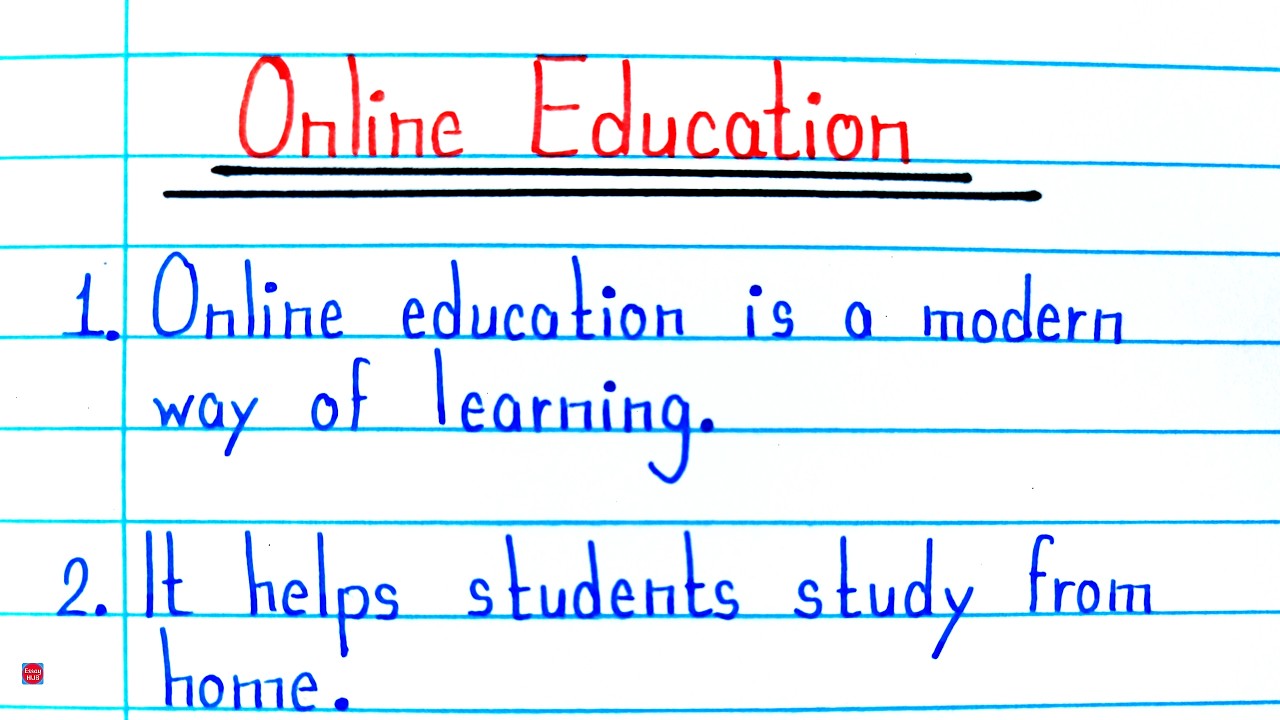 Online Education
1. Online education is a modern
way of learning.
2. It helps students study from
home.
Essay
HUB